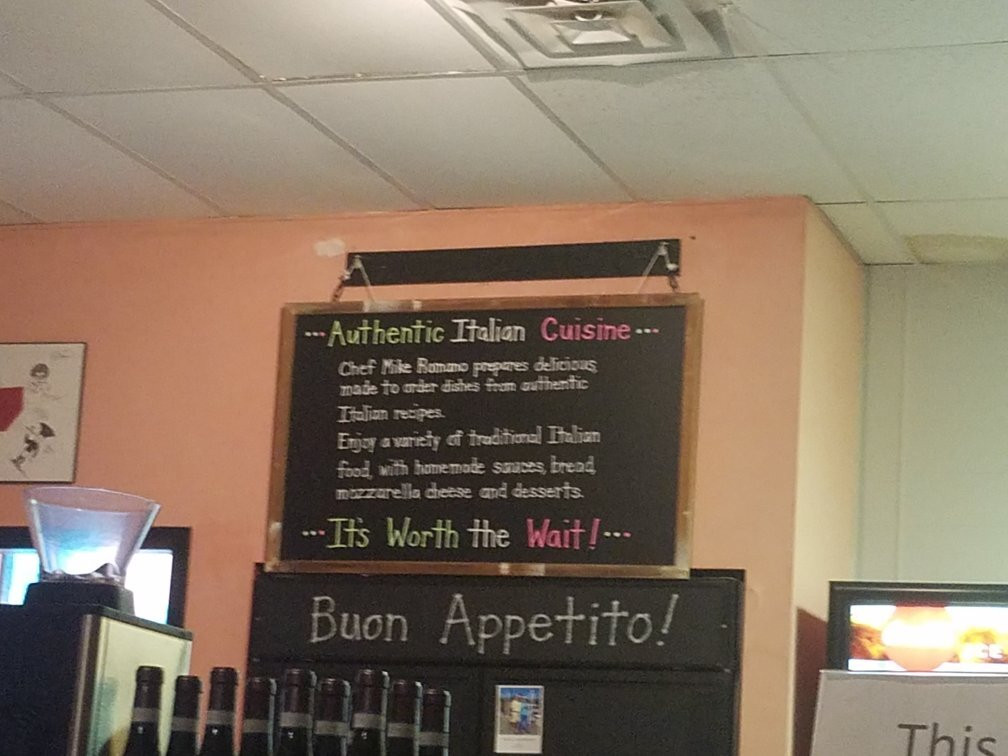 ---Authentic Italian Cuisine---
Chef Mike Romano prepares delicious,
made to order dishes from authentic
Italian recipes.
Enjoy a variety of traditional Italian
food, with homemade sauces, bread,
mozzarella cheese and desserts.
---It's Worth the Wait!---
Buon Appetito!
This